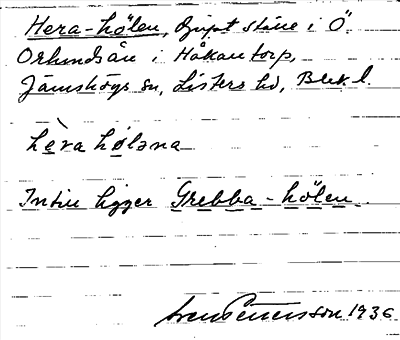 Hera-hölen, djupt ställe i Ö.
Orlundsån i Håkantorp,
Jämshögs sn, Listers hd, Blek. l.
hèra hølǝna
Intill ligger Grebba-hölen.
Sven Petersson 1936